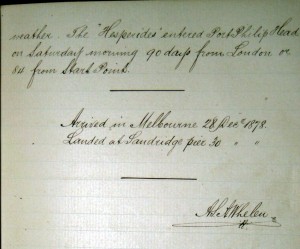 matter. The "Hesperides" entered Port Philip Head
on Saturday morning 90 days from London or
84 from Start Point.
Arrived in Melbourne 28 Decr 1878.
Landed at Sandridge pier 30 " "
A Whelen